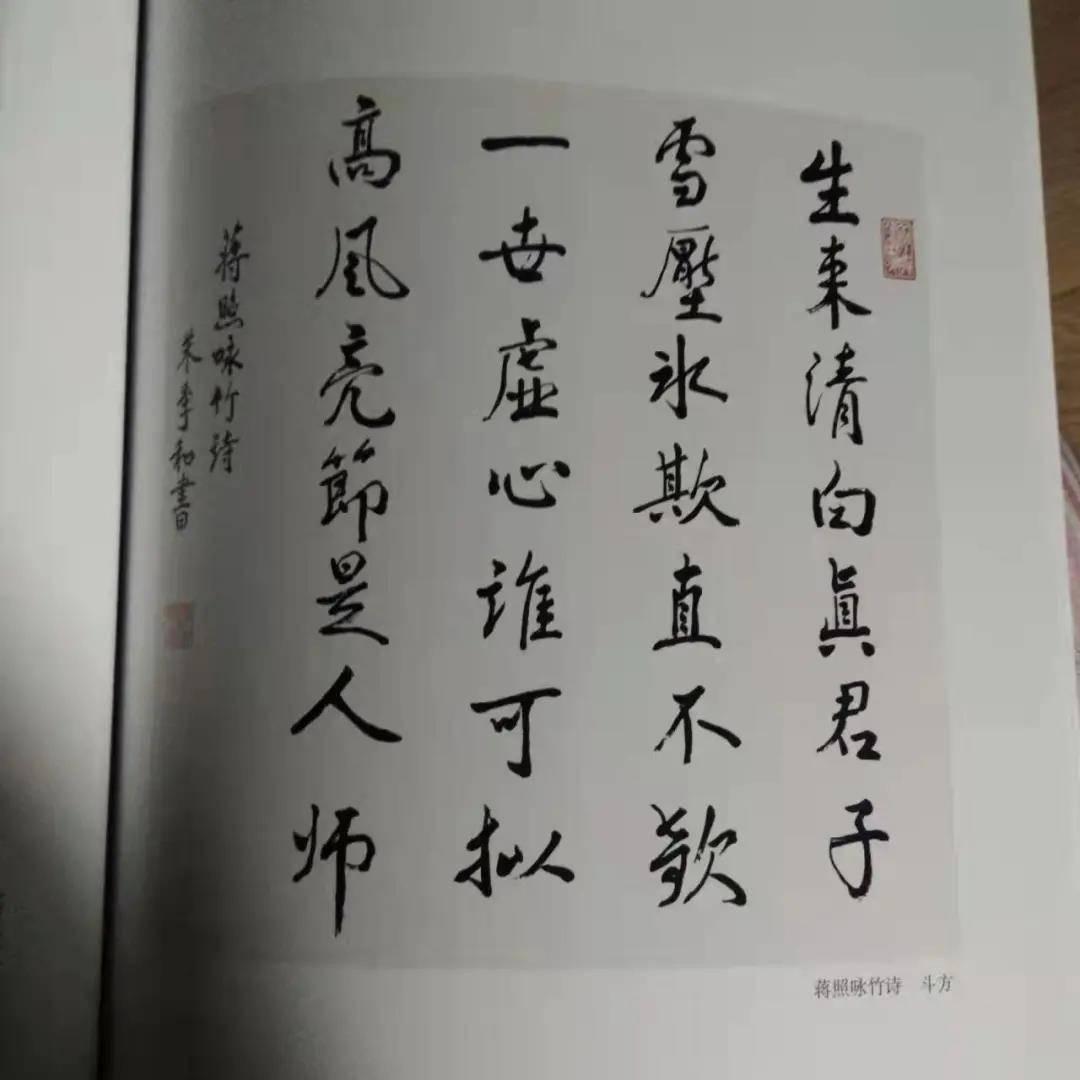 生来清白眞君子
雪壓冰欺直不欹
一世虚心谁可拟
高风亮節是人师
蒋照咏竹诗
朱季和書
蒋照咏竹诗 斗方